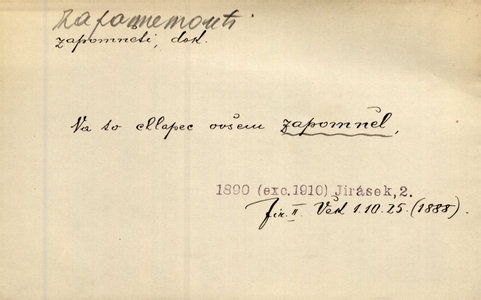 zapomenouti
zapomněti, dok.
Na to chlapec ovšem zapomněl,
1890 (exc.1910) Jirásek, 2.
Jir. II. Věk 1.10.25. (1888).